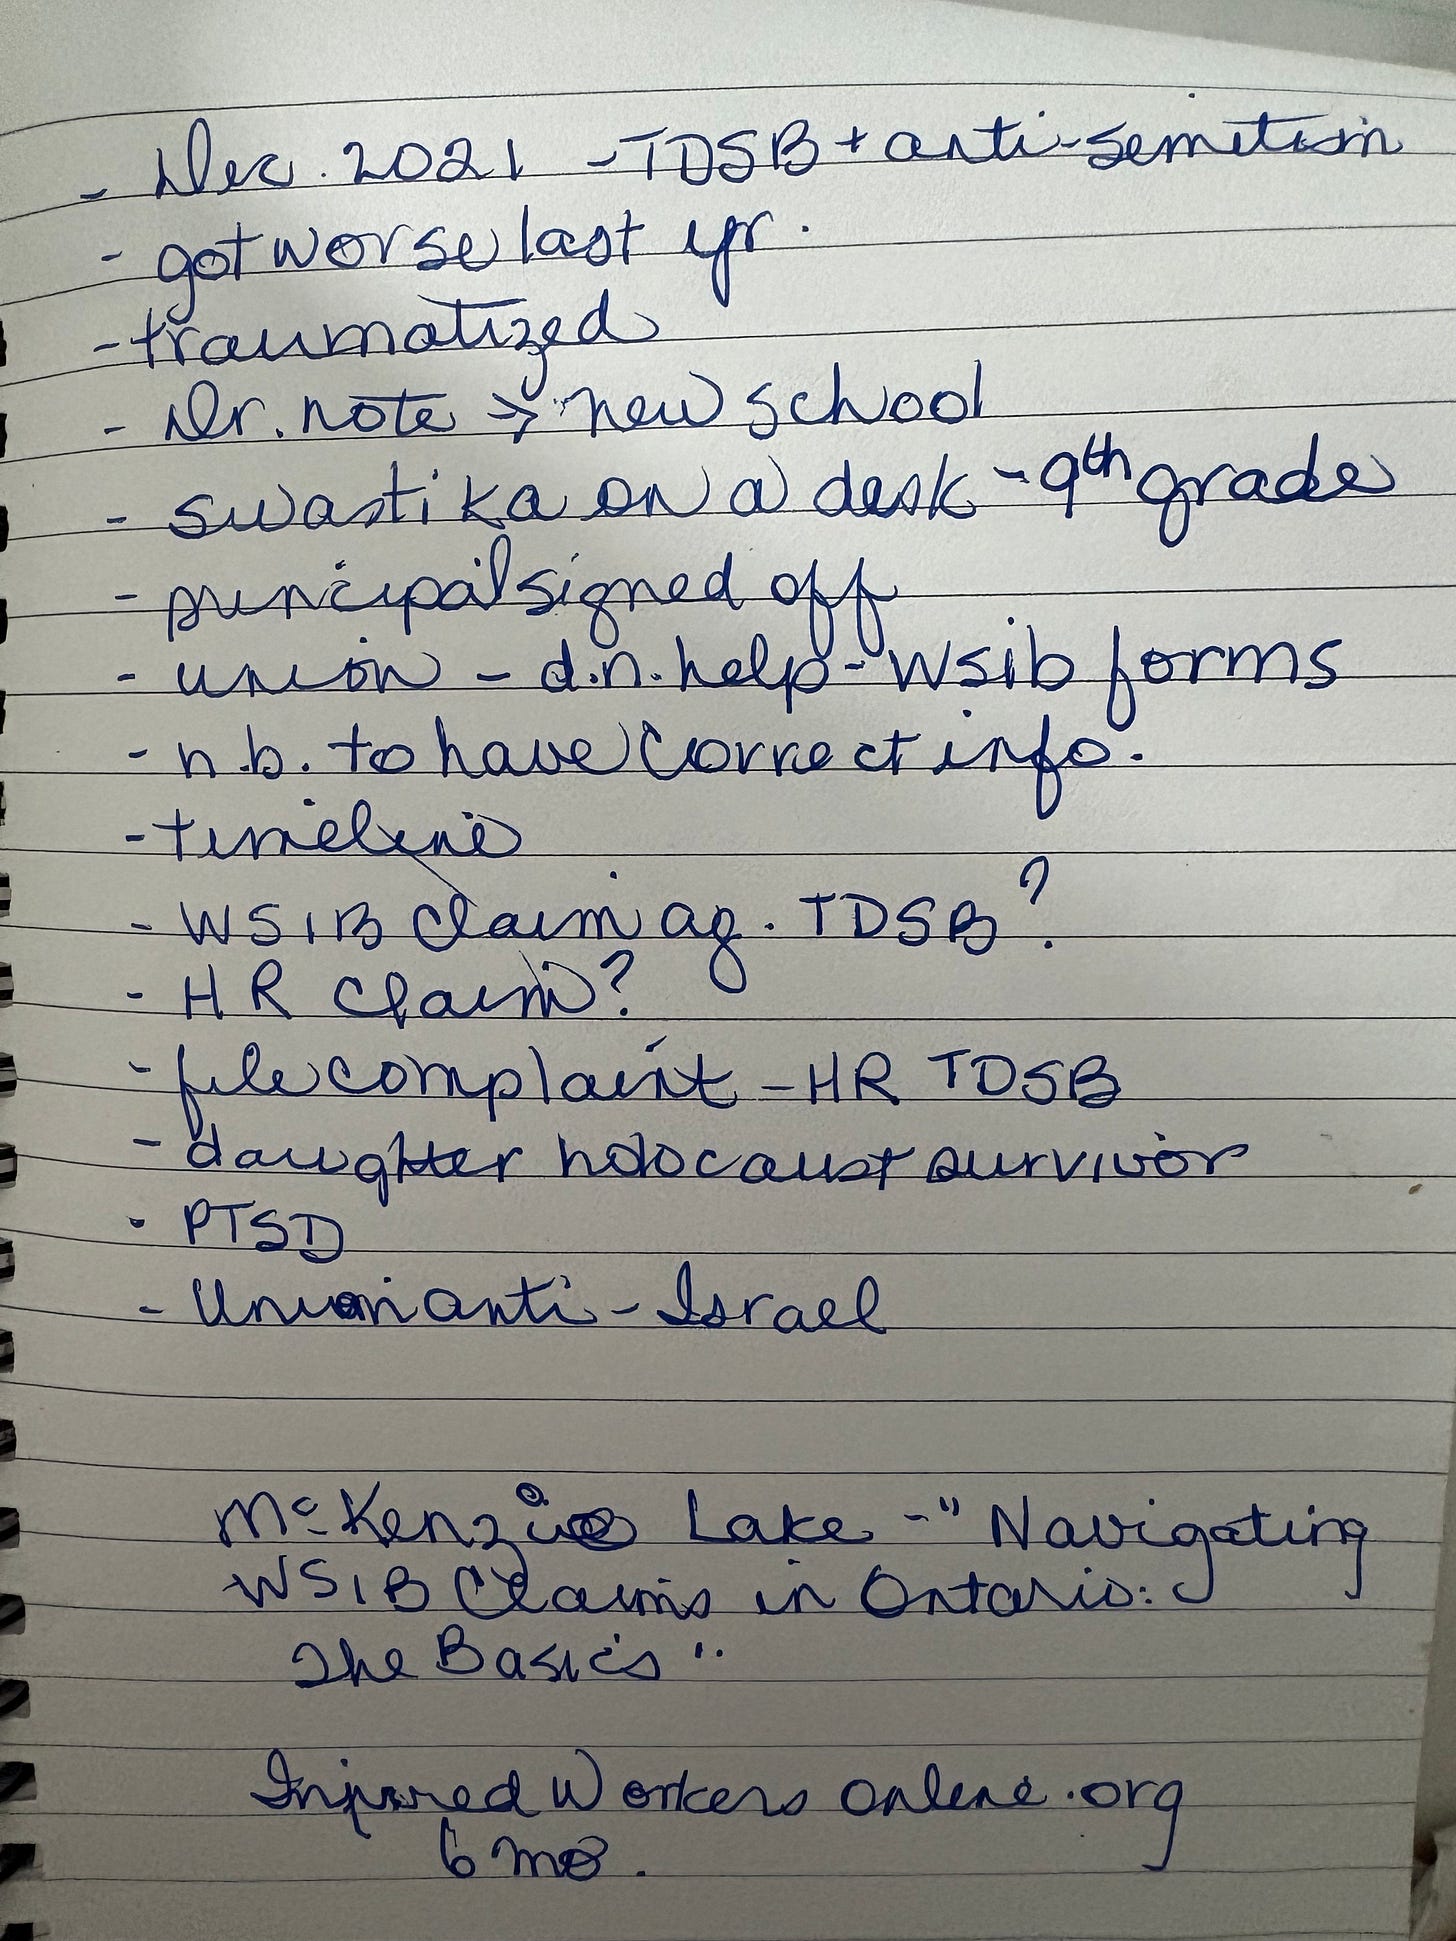 - Dec. 2021 - TDSB + anti-semitism
- got worse last yr.
- traumatized
- Dr. note → new school
- swastika on a desk - 9th grade
- principal signed off
- union - d.n. help - wsib forms
- n.b. to have correct info.
- timeline
- WSIB claim ag. TDSB?
- HR claim?
- file complaint - HR TDSB
- daughter holocaust survivor
- PTSD
- Union anti-Israel
McKenzie Lake - "Navigating
WSIB Claims in Ontario:
The Basics"
Injured Workers online.org
6 mo.